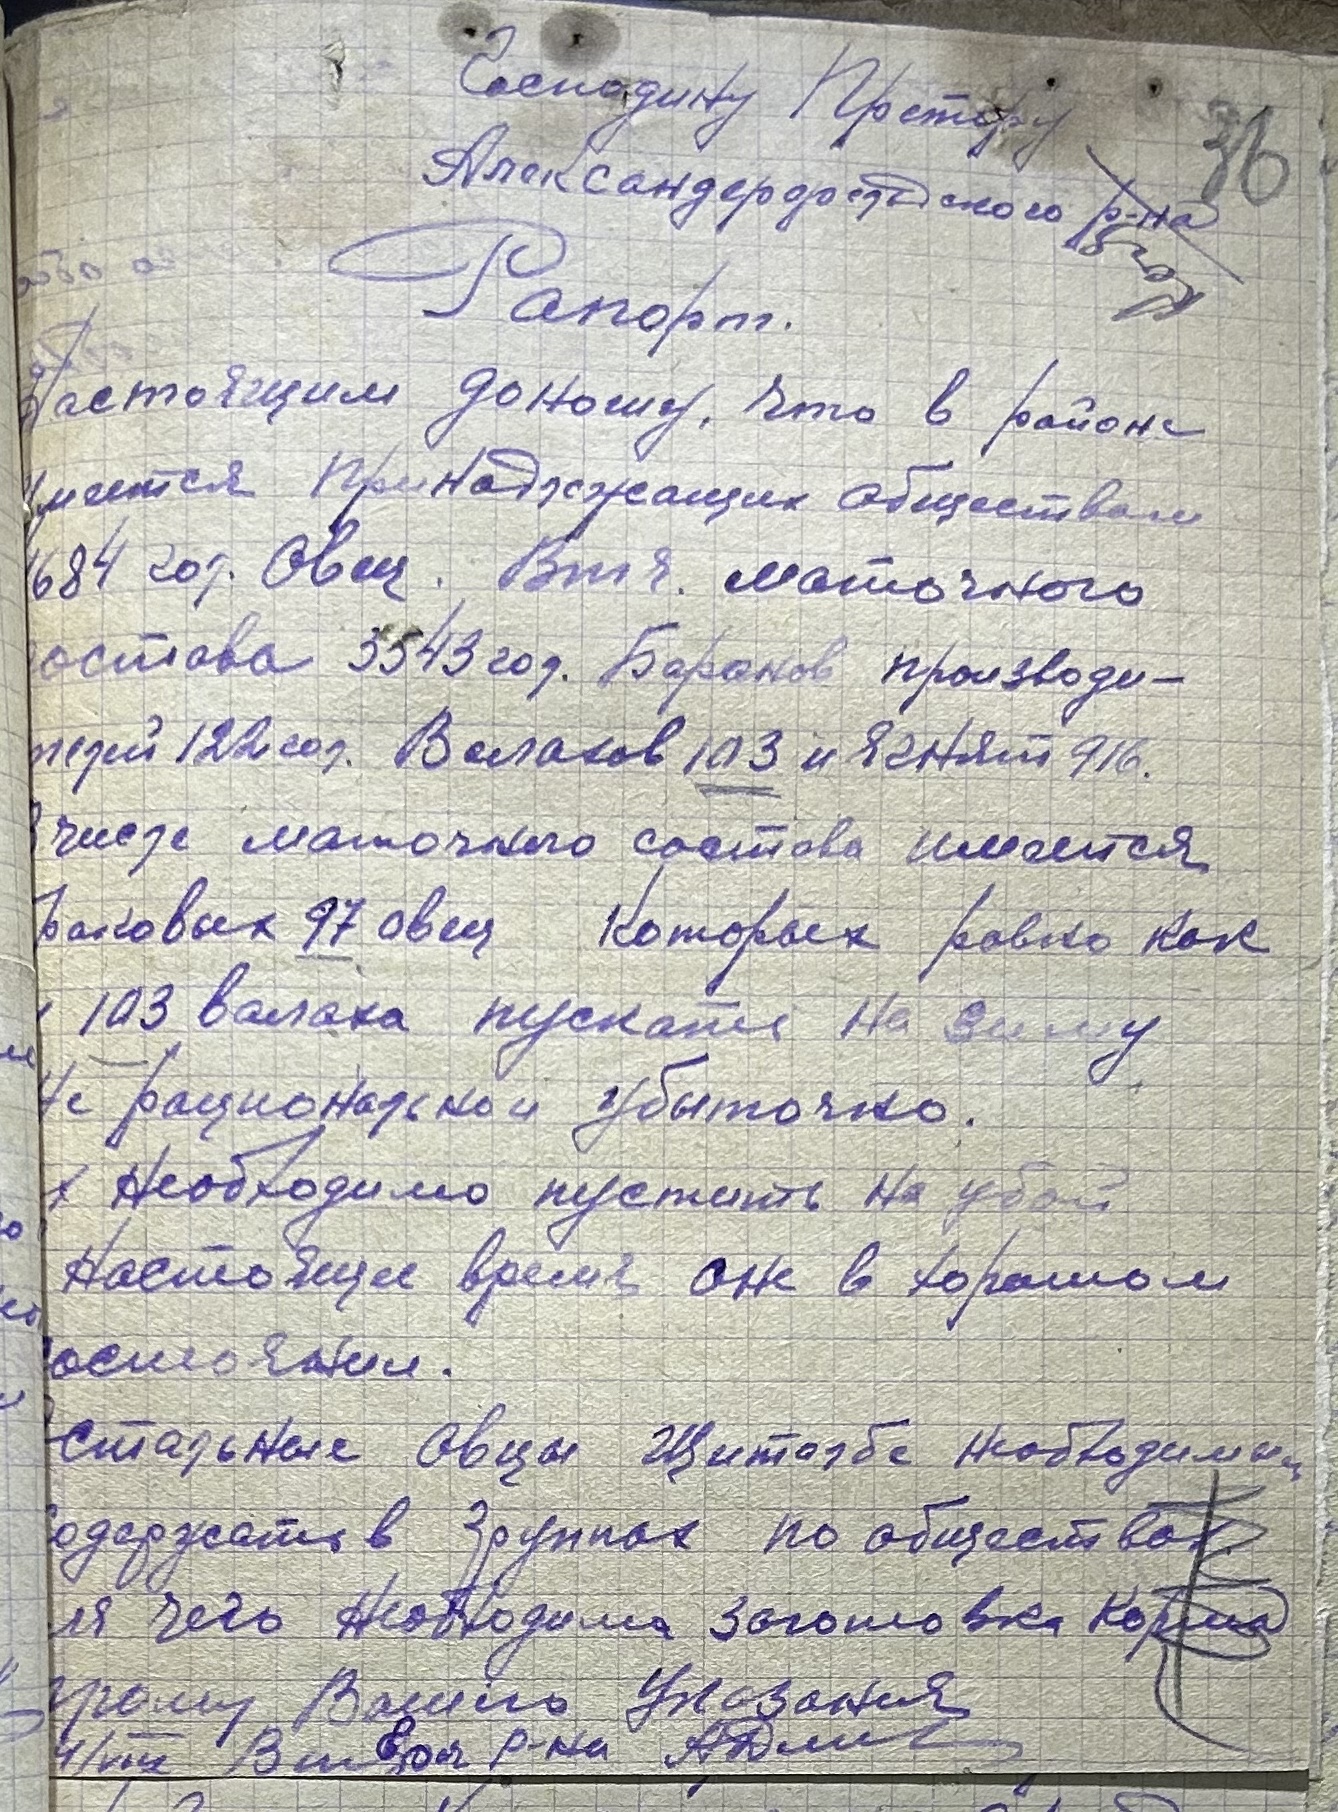 Господину Претору
36
Александердорфского р-на
Рапорт.
Настоящим доношу, что в районе
имеется принадлежащих обществам
4684 гол. Овец. Вт.ч. маточного
состава 3543 гол. Баранов производи-
телей 122 гол. Валахов 103 и ягнят 916.
В числе маточного состава имеется
браковых 97 овец которых ровно как
и 103 валаха пускать на зиму
не рационально и убыточно.
Их необходимо пустить на убой
в настоящее время они в хорошом
состоянии.
Остальные овцы необходимо
содержать в группах по обществах
для чего необходима заготовка корма
прошу Вашего Указания
р-на